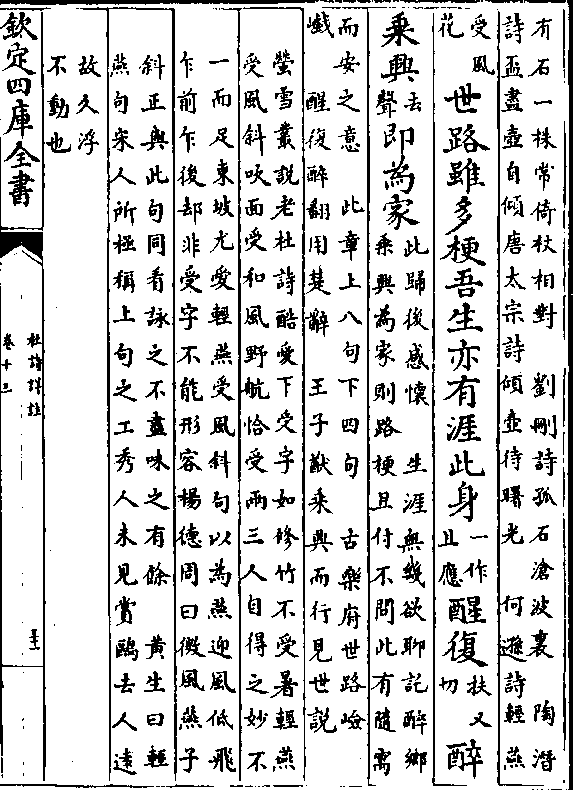 有石一株常倚杖相對　劉刪詩孤石滄波裏　陶潛
詩盃盡壺自傾唐太宗詩傾壺待曙光　何遜詩輕燕
受風
花　世路雖多梗吾生亦有涯此身
一作
且應
醒復
扶又
切
醉
乘興
去
聲
即為家
此歸後感懷　生涯無幾欲聊託醉鄉
乘興為家則路梗且付不問此有隨寓
而安之意　此章上八句下四句　古樂府世路嶮
巇　醒復醉翻用楚辭　王子猷乘興而行見世説
螢雪叢説老杜詩酷愛下受字如修竹不受暑輕燕
受風斜吹面受和風野航恰受兩三人自得之妙不
一而足東坡尤愛輕燕受風斜句以為燕迎風低飛
乍前乍後却非受字不能形容楊德周曰微風燕子
斜正與此句同看詠之不盡味之有餘　黃生曰輕
燕句宋人所極稱上句之工秀人未見賞鷗去人遠
故久浮
不動也
欽定四庫全書
杜詩詳註
卷十三